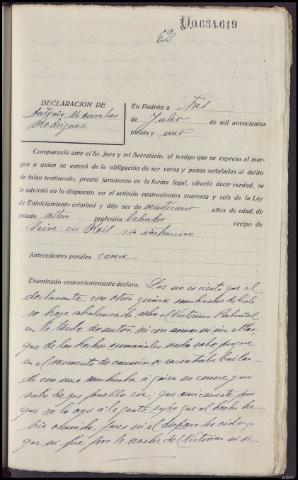 V0.634.619
62
DECLARACION DE
Rodriguez
En Padrón a Tres
de Julio de mil novecientos
treinta y uno
Compareció ante el Sr. Juez y mi Secretario, el testigo que se expresa al mar-
gen a quien se enteró de la obligación de ser veraz y penas señaladas al delito
de falso testimonio, prestó juramento en la forma legal, ofreció decir verdad, se
le advirtió en lo dispuesto en el artículo cuatrocientos cuarenta y seis de la Ley
de Enjuiciamiento criminal y dijo ser de veintiuno años de edad, de
estado soltero profesión labrador vecino de
sin instrucción
Antecedentes penales carece
Examinado convenientemente declara: Que no es cierto que el
declarante con otros quince muchachos de
se haya abalanzado sobre el Victorino
en la tarde de autos, ni con armas ni sin ellas,
que de los hechos sumariales nada sabe pues
en el momento de ocurrir se encontraba bailan-
do con una muchacha a quien no conoce y no
sabe de que pueblo era, que unicamente por
que se lo oyó a la gente supo que el hecho ha-
bia ocurrido, pues ni el disparo ha oido,
que ni fué por la noche del Victorino ni